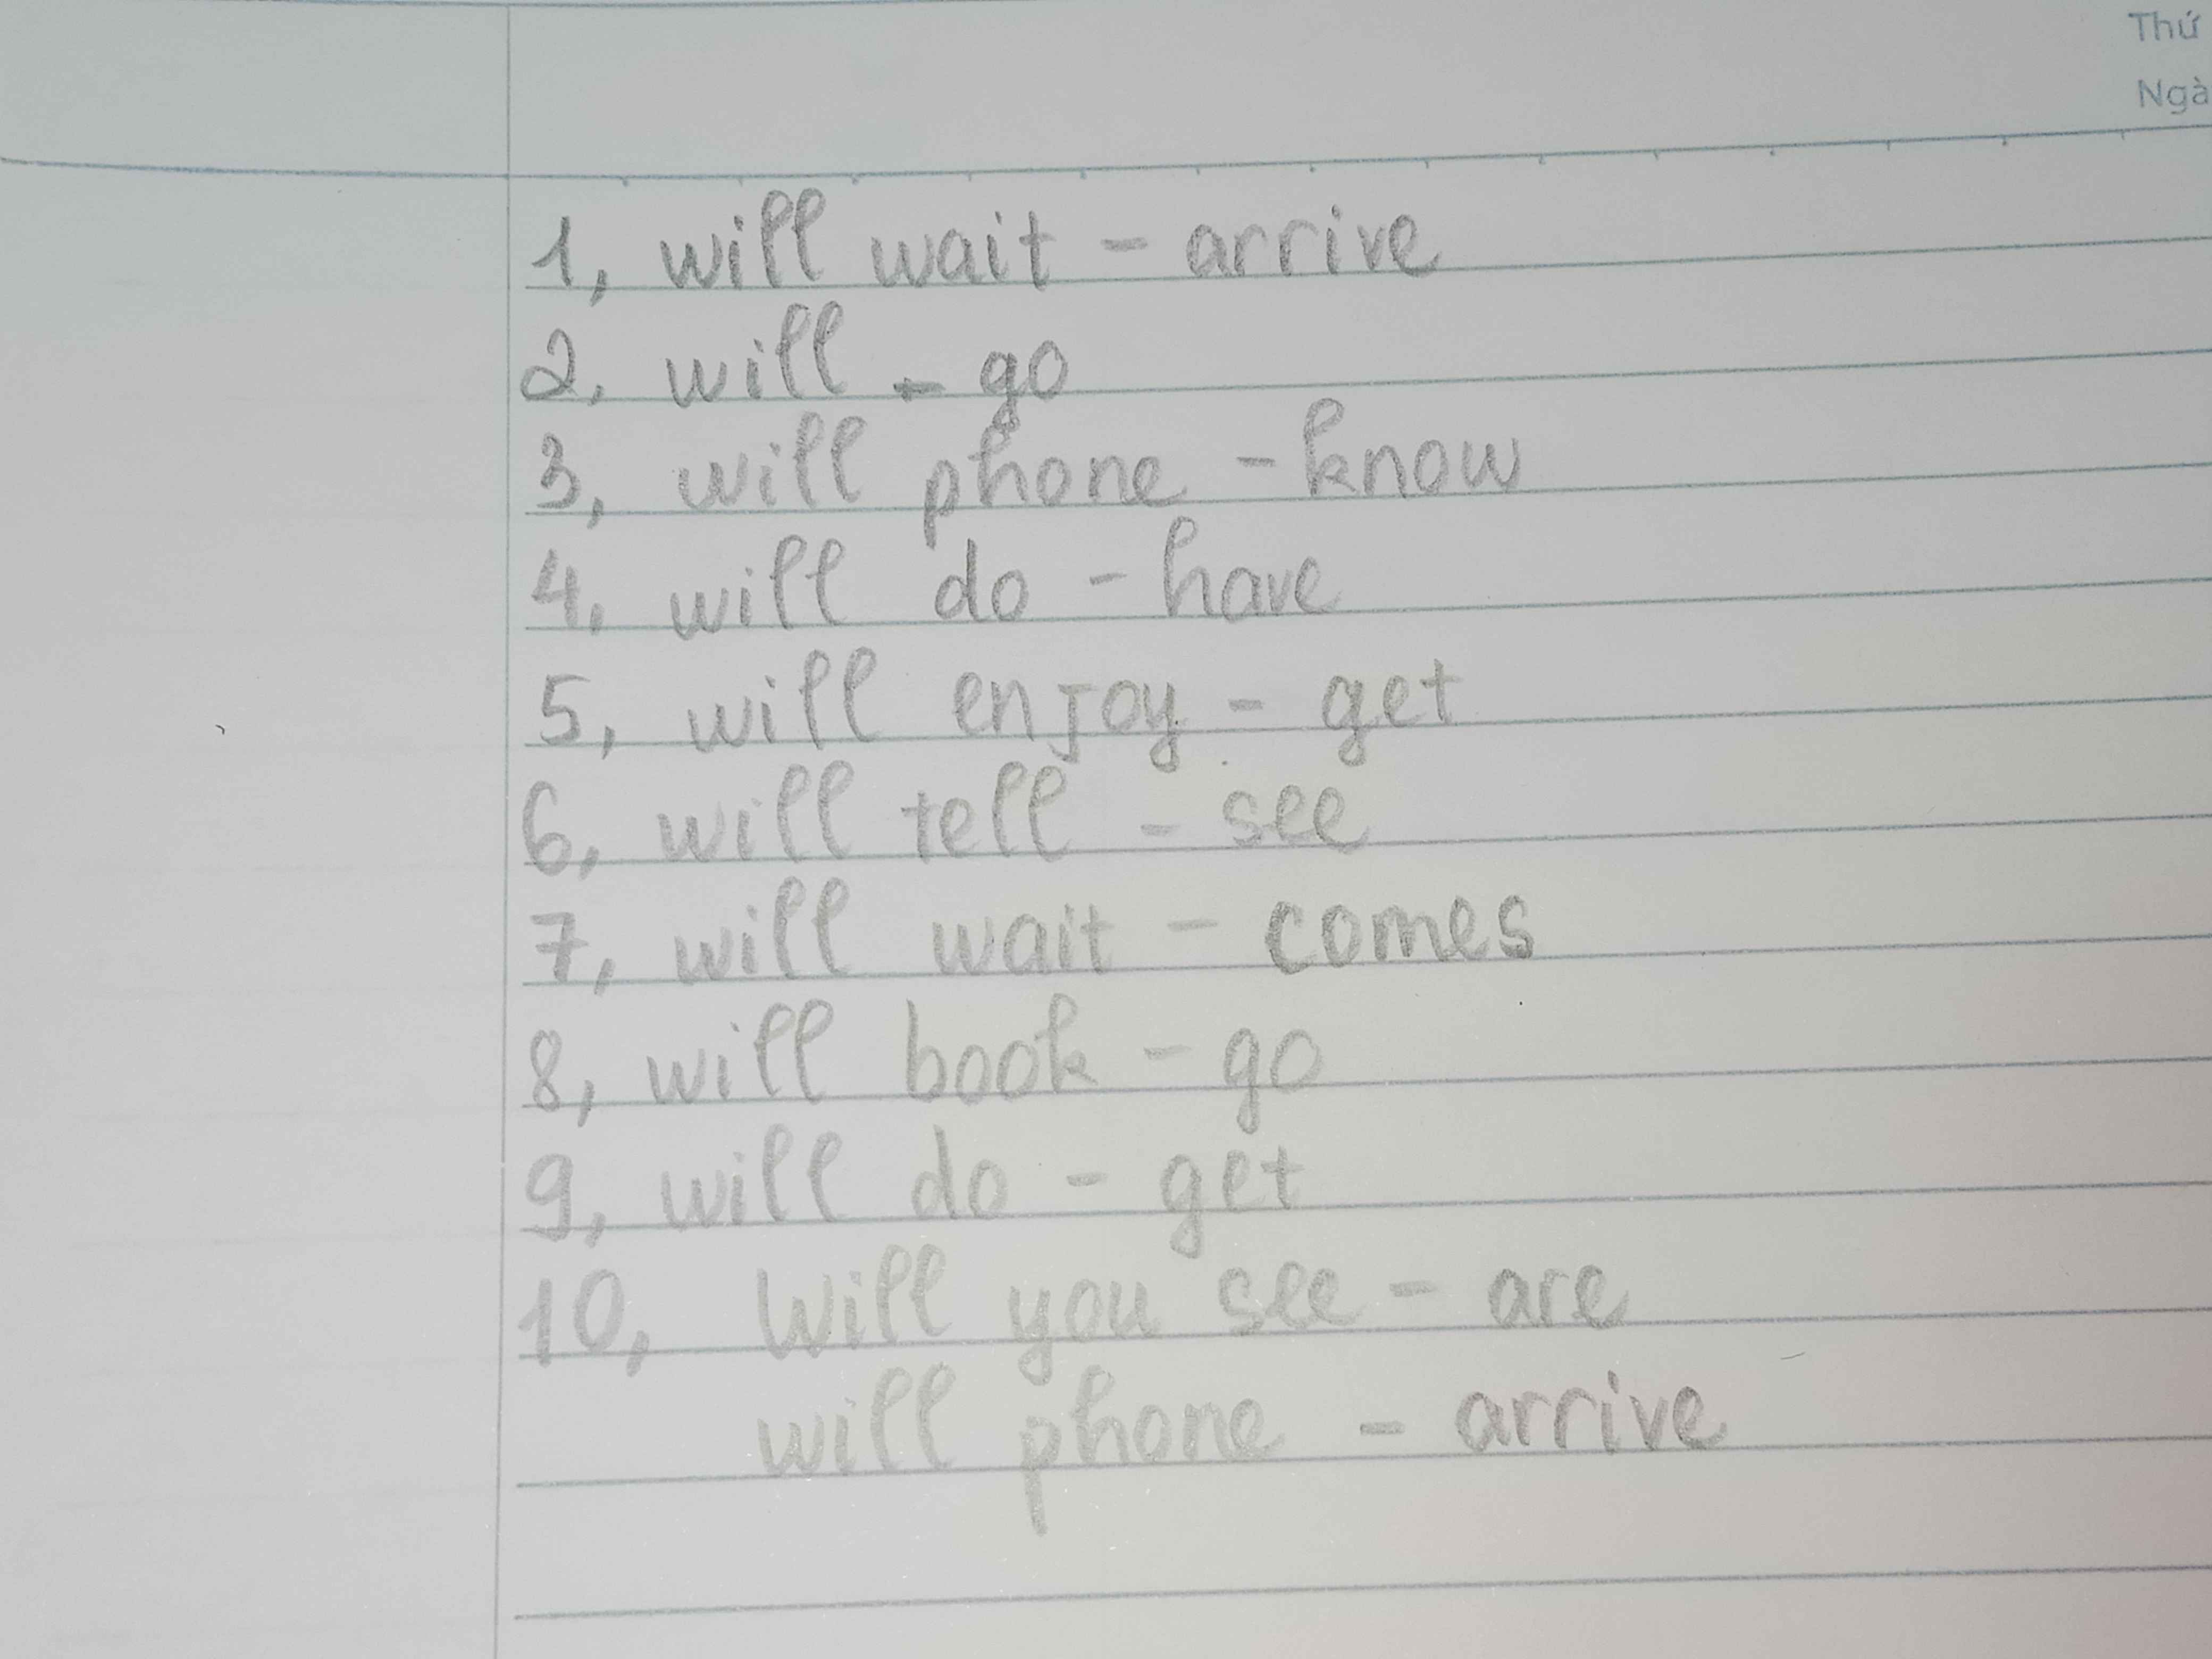 Thứ
Ngà
1, will wait - arrive
2, will - go
3, will phone - know
4, will do - have
5, will enjoy - get
6, will tell - see
7, will wait - comes
8, will book - go
9, will do - get
10, Will you see - are
will phone - arrive